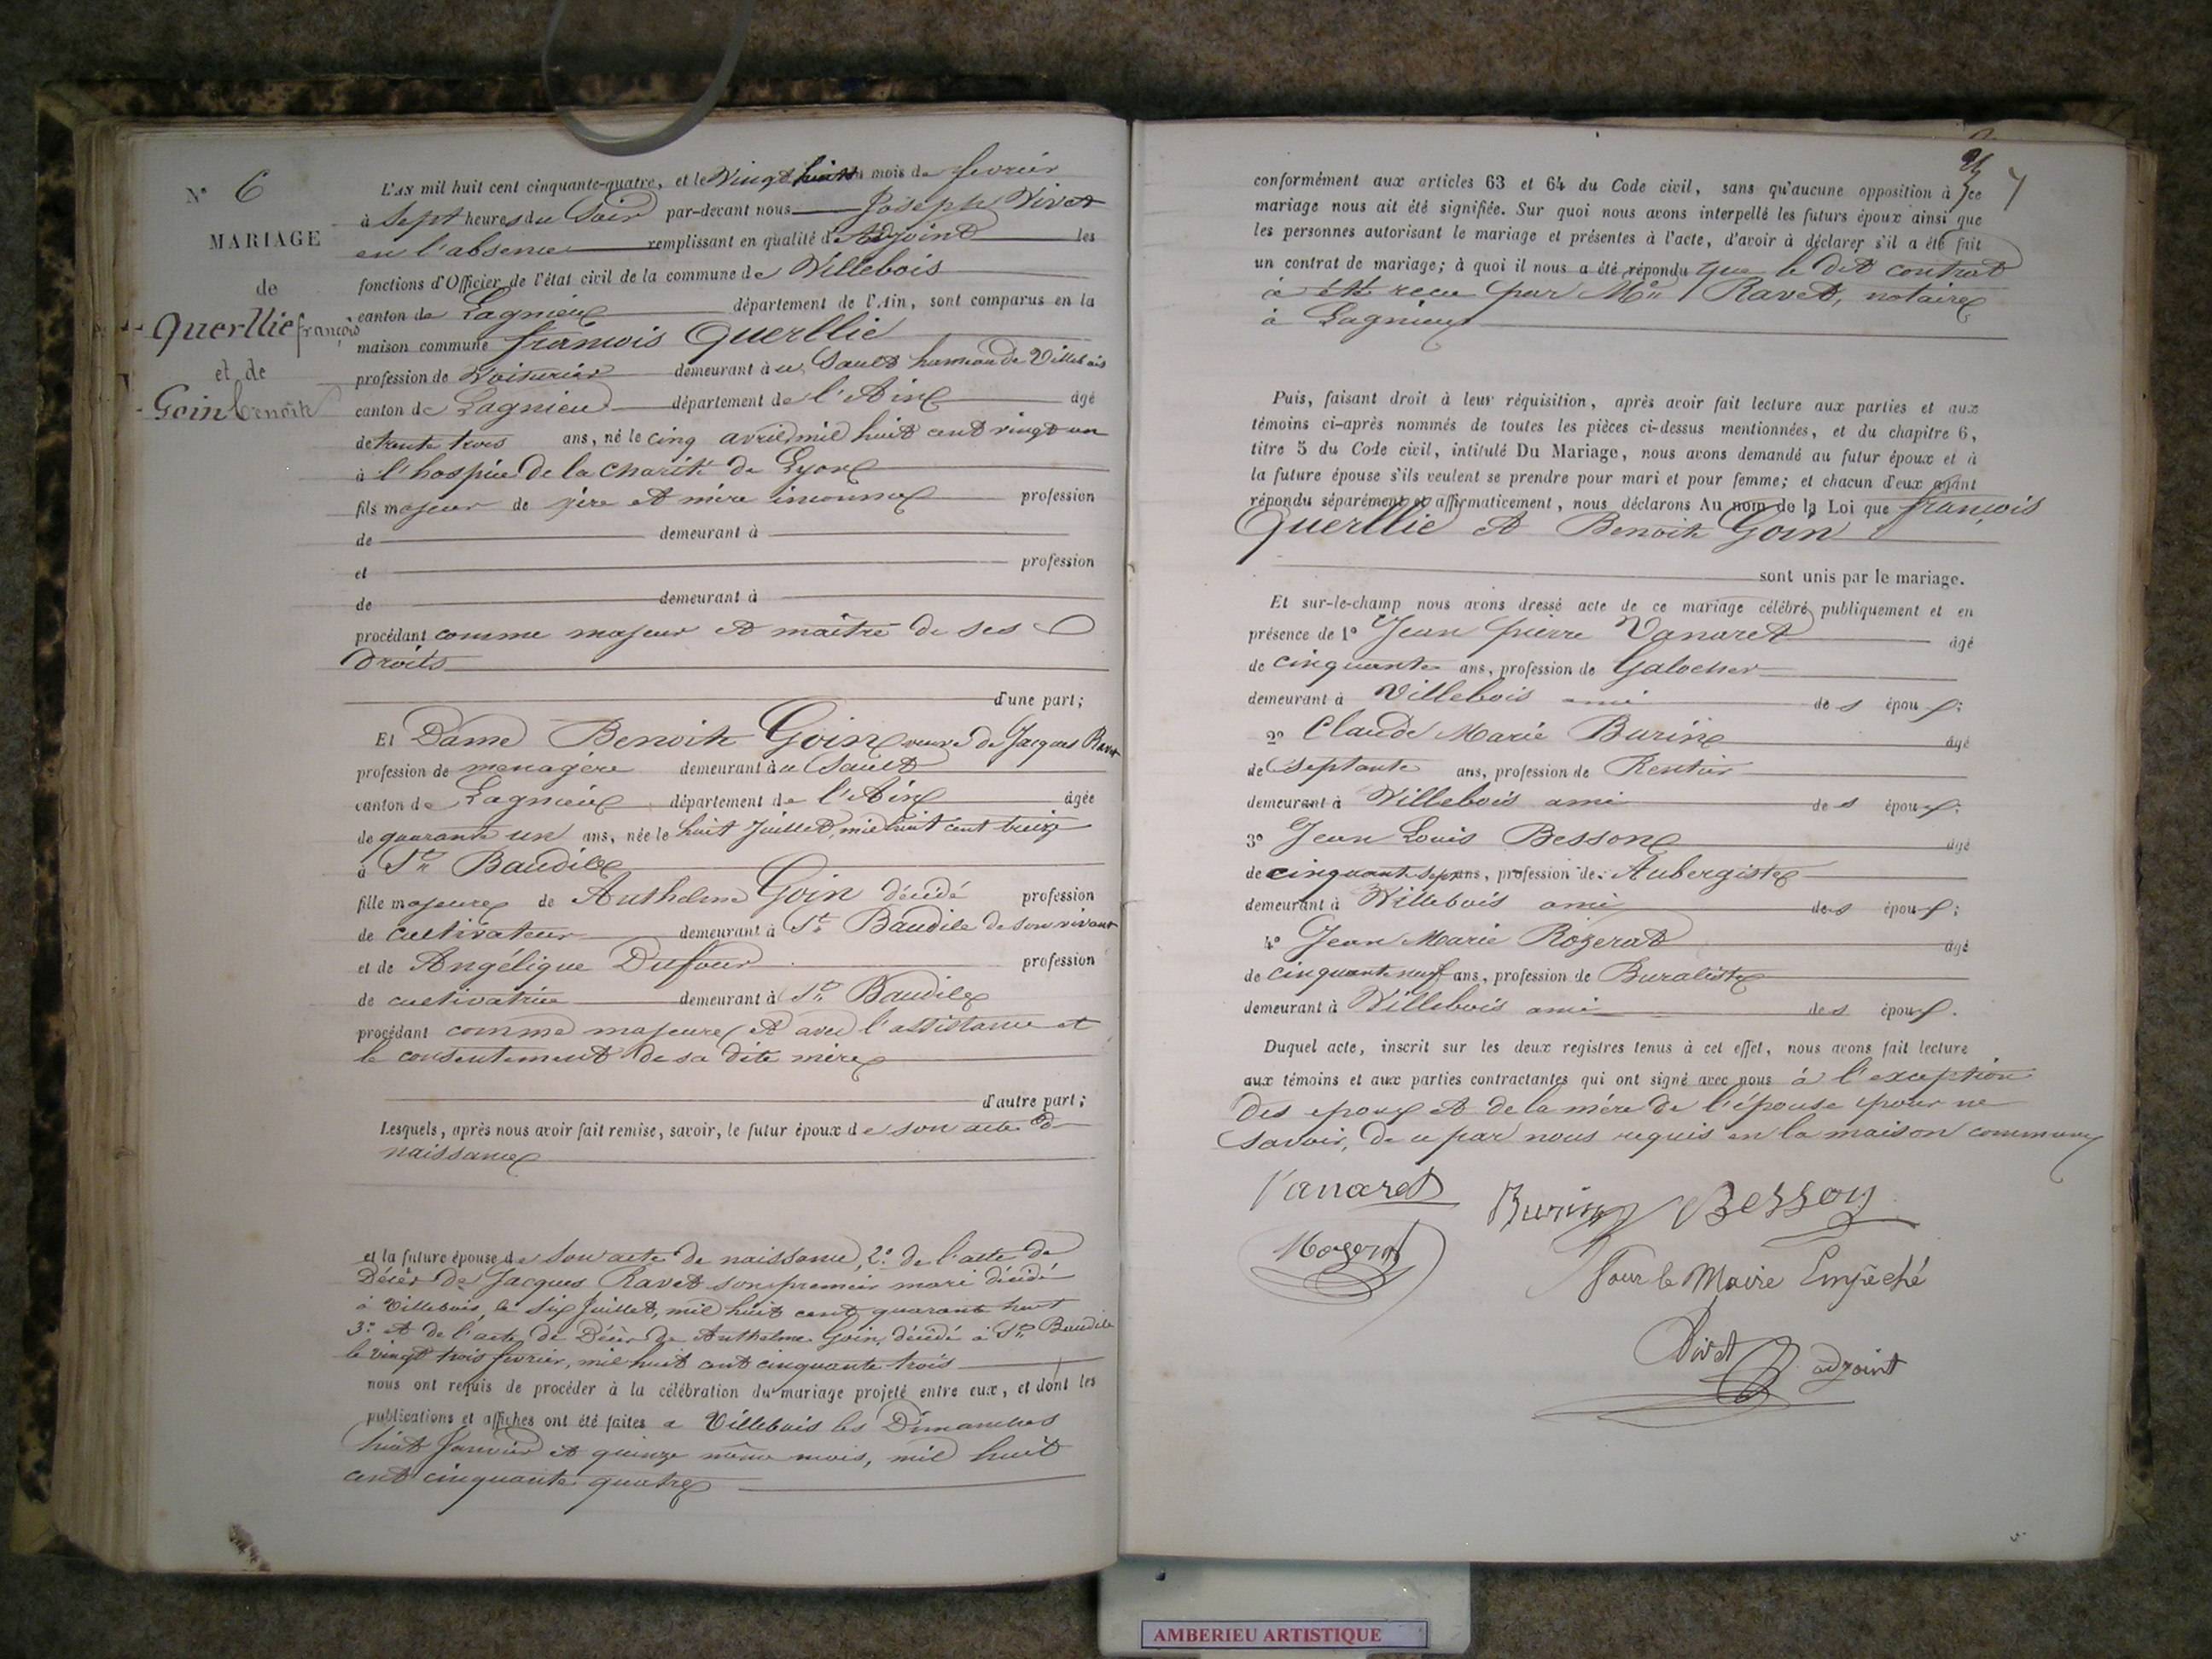 N° 6
MARIAGE
de
Querllie françois
et de
Goin benoite
L'AN mil huit cent cinquante-quatre, et le Vingt huit du mois de fevrier
à Sept heures du Soir par-devant nous Joseph Vivet
en l'absence remplissant en qualité d'Adjoint les
fonctions d'Officier de l'état civil de la commune de Villebois
canton de Lagnieu département de l'Ain, sont comparus en la
maison commune françois Querllie
profession de Voiturier demeurant à u Sault hameau de Villebois
canton de Lagnieu département de l'Ain âgé
de trente trois ans, né le cinq avril mil huit cent vingt un
à l'hospice de la charité de Lyon
fils majeur de père et mère inconnus profession
de demeurant à
et profession
de demeurant à
procédant comme majeur et maître de ses
droits
d'une part;
Et Dame Benoite Goin veuve de Jacques Ravet
profession de menagère demeurant à u Sault
canton de Lagnieu département de l'Ain âgée
de quarante un ans, née le huit Juillet, mil huit cent treize
à St Baudile
fille majeure de Anthelme Goin décédé profession
de cultivateur demeurant à St Baudile de son vivant
et de Angélique Dufour profession
de cultivatrice demeurant à St Baudile
procédant comme majeure et avec l'assistance et
le consentement de sa dite mère
d'autre part;
Lesquels, après nous avoir fait remise, savoir, le futur époux de son acte de
naissance
et la future épouse de son acte de naissance, 2° de l'acte de
Décès de Jacques Ravet son premier mari décédé
à Villebois, le six Juillet, mil huit cent quarante huit
3° et de l'acte de Décès de Anthelme Goin, décédé à St Baudile
le vingt trois fevrier, mil huit cent cinquante trois
nous ont requis de procéder à la célébration du mariage projeté entre eux, et dont les
publications et affiches ont été faites a Villebois les Dimanches
huit Janvier et quinze même mois, mil huit
cent cinquante quatre
7
conformément aux articles 63 et 64 du Code civil, sans qu'aucune opposition à ce
mariage nous ait été signifiée. Sur quoi nous avons interpellé les futurs époux ainsi que
les personnes autorisant le mariage et présentes à l'acte, d'avoir à déclarer s'il a été fait
un contrat de mariage; à quoi il nous a été répondu que le dit contrat
a été recu par Me Ravet, notaire
à Lagnieu
Puis, faisant droit à leur réquisition, après avoir fait lecture aux parties et aux
témoins ci-après nommés de toutes les pièces ci-dessus mentionnées, et du chapitre 6,
titre 5 du Code civil, intitulé Du Mariage, nous avons demandé au futur époux et à
la future épouse s'ils veulent se prendre pour mari et pour femme; et chacun d'eux ayant
répondu séparément et affirmativement, nous déclarons Au nom de la Loi que françois
Querllie et Benoite Goin
sont unis par le mariage.
Et sur-le-champ nous avons dressé acte de ce mariage célébré publiquement et en
présence de 1° Jean pierre Vanaret âgé
de cinquante ans, profession de Galocher
demeurant à Villebois ami de s époux;
2° Claude Marie Burin âgé
de septante ans, profession de Rentier
demeurant à Villebois ami de s époux;
3° Jean Louis Besson âgé
de cinquante sept ans, profession de Aubergiste
demeurant à Villebois ami de s époux;
4° Jean Marie Rozerat âgé
de cinquante neuf ans, profession de Buraliste
demeurant à Villebois ami de s époux.
Duquel acte, inscrit sur les deux registres tenus à cet effet, nous avons fait lecture
aux témoins et aux parties contractantes qui ont signé avec nous à l'exception
des epoux et de la mère de l'épouse pour ne
savoir, de ce par nous requis en la maison commune
Vanaret Burin Besson
Rozerat
Pour le Maire Empêché
Vivet adjoint
5
AMBERIEU ARTISTIQUE